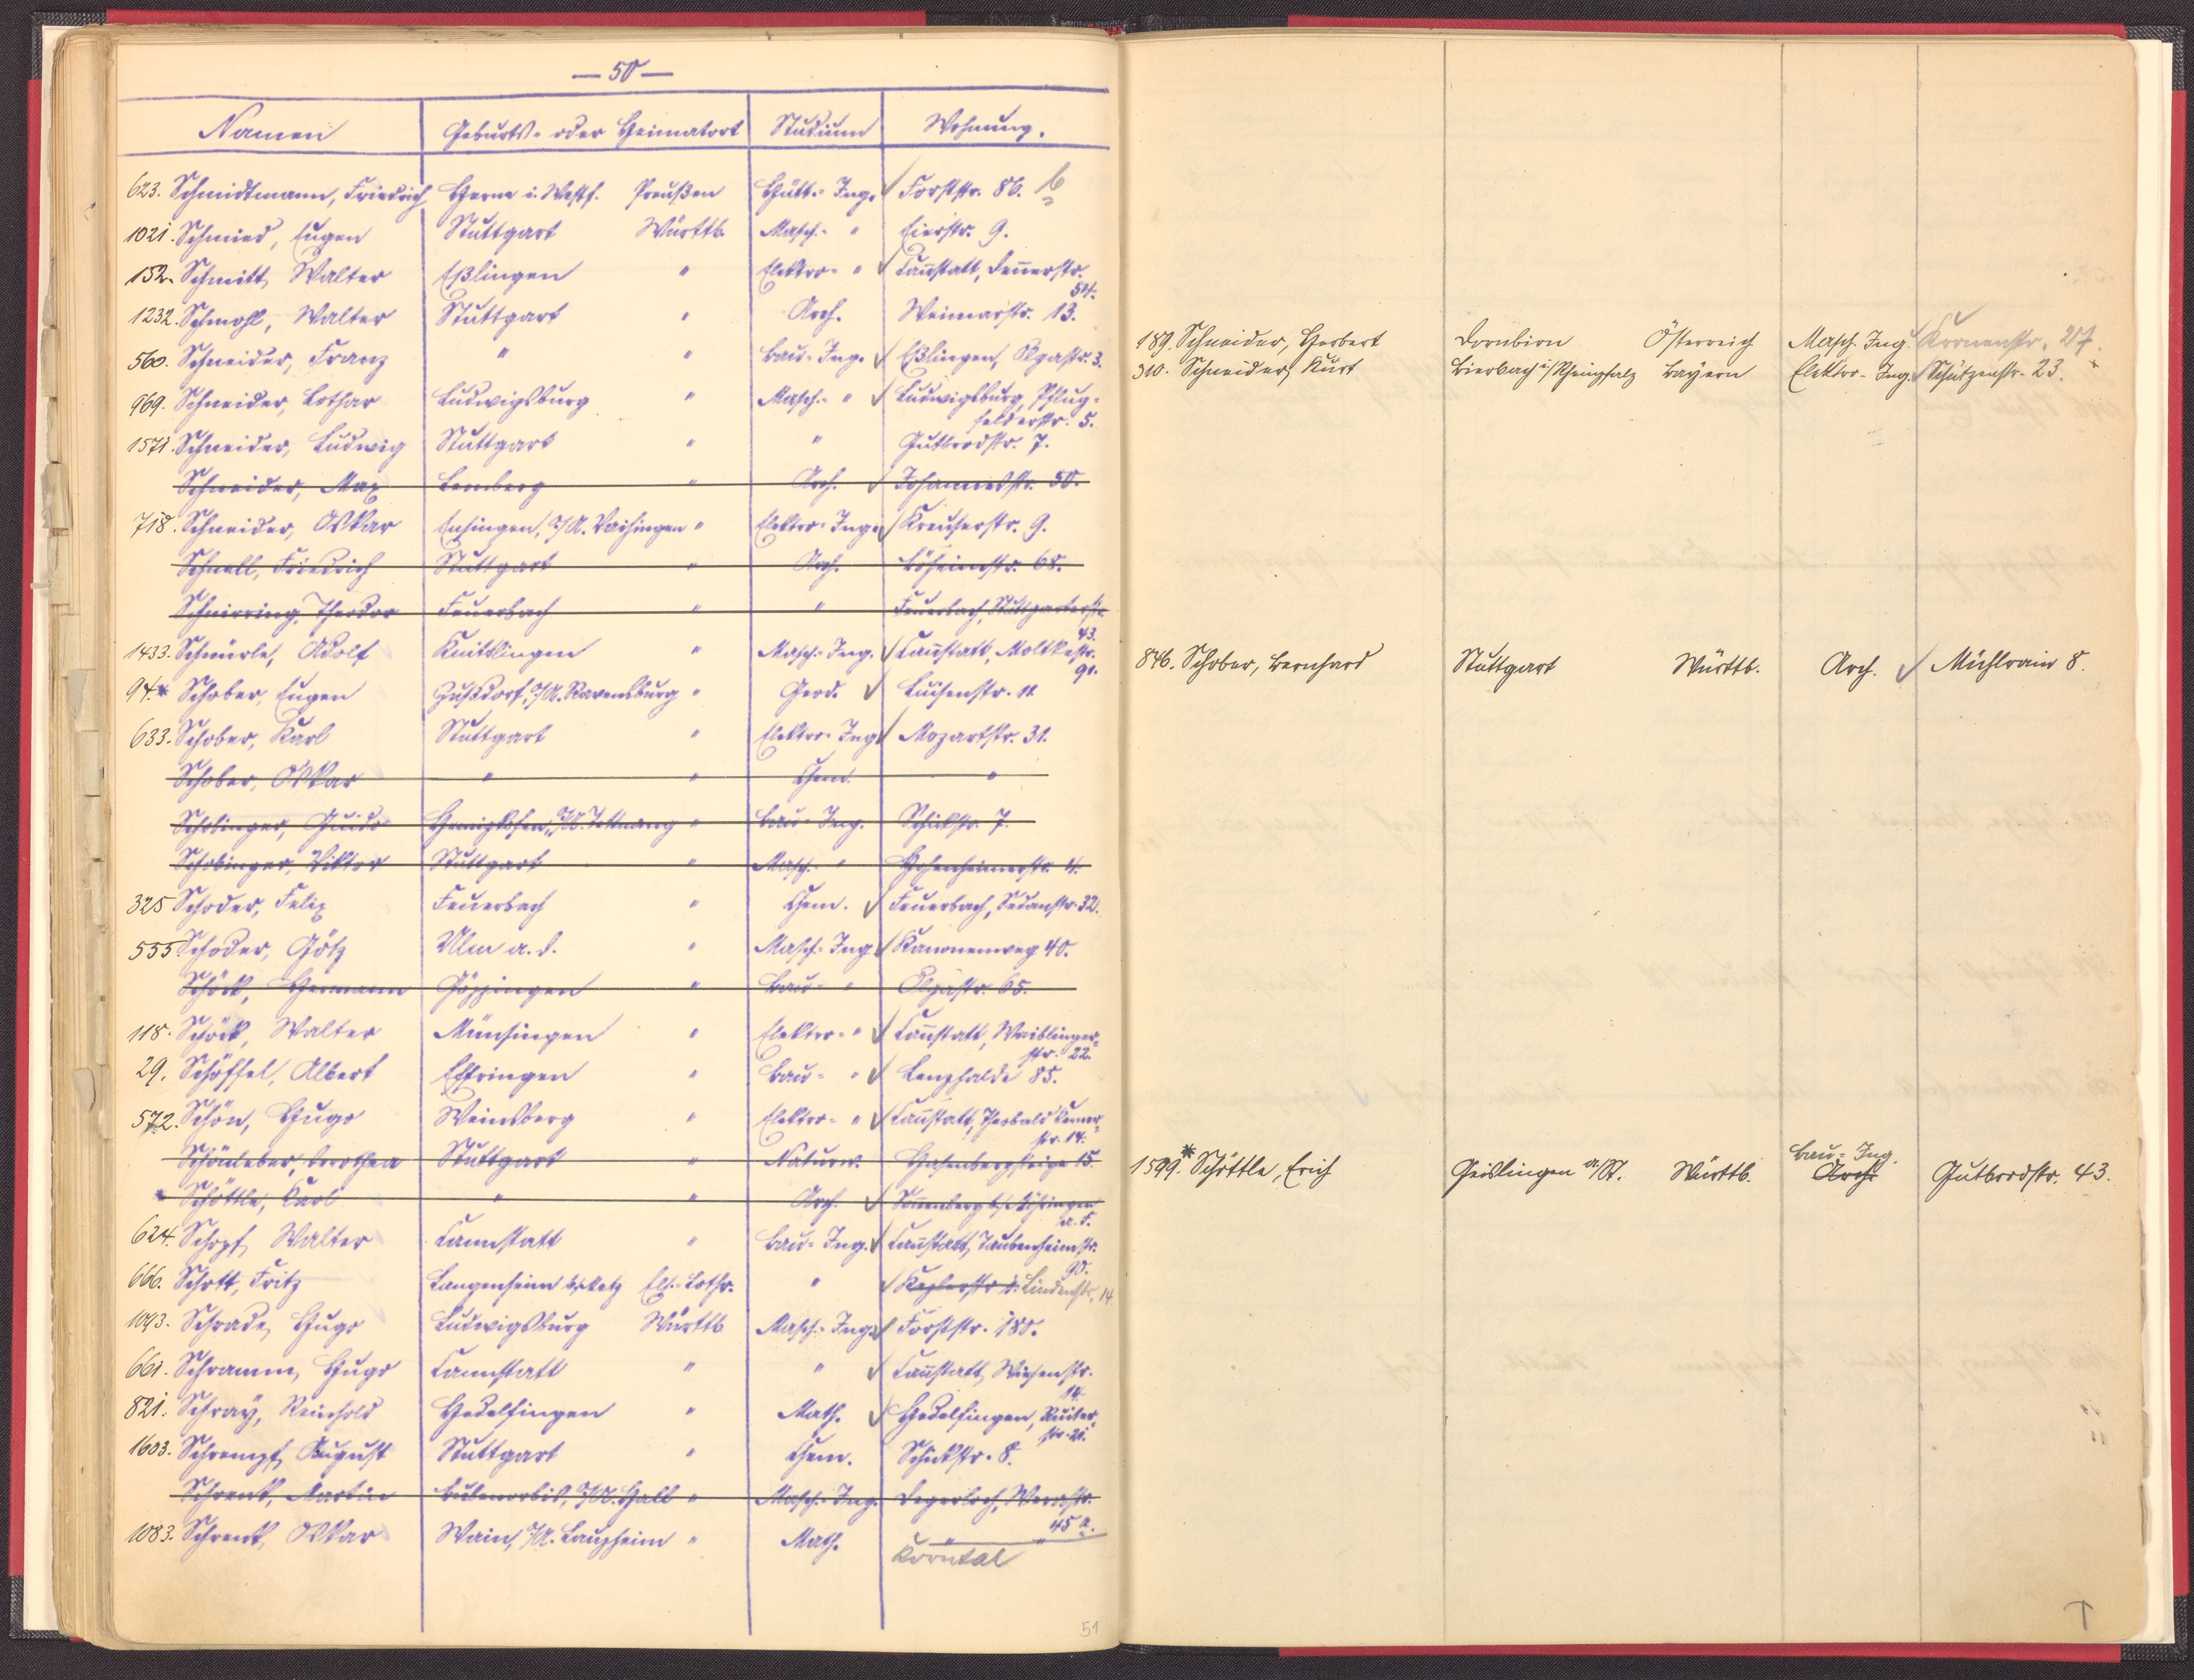 — 50 —
Namen Geburts- oder Heimatort Studium Wohnung.
623. Schmidtmann, Friedrich Herne i. Westf. Preußen Hütt.- Ing. ✓ Forststr. 86. b
1021. Schmied, Eugen Stuttgart Württb. Masch.- " Eierstr. 9.
152. Schmitt, Walter Eßlingen " Elektro- " ✓ Can̄statt, Den̄erstr.
54.
1232. Schmohl, Walter Stuttgart " Arch. Weimarstr. 13.
560. Schneider, Franz " " Bau-Ing. ✓ Eßlingen, Olgastr. 3.
969. Schneider, Lothar Ludwigsburg " Masch.- " ✓ Ludwigsburg, Pflug-
felderstr. 5.
1571. Schneider, Ludwig Stuttgart " " Gutbrodstr. 7.
Schneider, Max Lemberg " Arch. ✓ Johannesstr. 50.
718. Schneider, Oskar Ensingen, O/A. Vaihingen " Elektro-Ing. ✓ Kreuserstr. 9.
Schnell, Friedrich Stuttgart " Arch. 68.
Schnirring, Theodor Feuerbach " " Feuerbach, Stuttgarterstr.
43.
1433. Schnürle, Adolf Knittlingen " Masch.-Ing. ✓ Can̄statt, Moltkestr.
91.
94.* Schober, Eugen Zußdorf, O/A. Ravensburg " Geod. ✓ Luisenstr. 11.
633. Schober, Karl Stuttgart " Elektro-Ing. ✓ Mozartstr. 31.
Schober, Oskar " " Chem. "
Schobinger, Guido Hemigkofen, O/A. Tettnang " Bau-Ing. Schickstr. 7.
Schobinger, Viktor Stuttgart " Masch.- " Hohenheimerstr. 4.
325 Schoder, Felix Feuerbach " Chem. ✓ Feuerbach, Sedanstr. 32.
555. Schoder, Götz Ulm a. D. " Masch.-Ing. ✓ Kanonenweg 40.
Schöck, Hermann Göppingen " Bau- " Olgastr. 65.
118. Schöck, Walter Münsingen " Elektro- " ✓ Can̄statt, Waiblinger-
str. 22.
29. Schöffel, Albert Effringen " Bau- " ✓ Lenzhalde 85.
572. Schön, Hugo Weinsberg " Elektro- " ✓ Can̄statt, Theobald Kerner-
str. 14.
Schönleber, Dorothea Stuttgart " Naturw. Hasenbergsteige 15.
* Schöttle, Karl " " Arch. ✓
a. F.
624. Schopf, Walter Cannstatt " Bau-Ing. ✓ Can̄statt, Taubenheimstr.
90.
666. Schott, Fritz Langenheim b/Metz Els.-Lothr. " ✓ Keplerstr. Lindenstr. 14.
1093. Schrade, Hugo Ludwigsburg Württb. Masch.-Ing. ✓ Forststr. 180.
661. Schramm, Hugo Cannstatt " " ✓ Can̄statt, Wiesenstr.
14.
821. Schray, Reinhold Hedelfingen " Math. ✓ Hedelfingen, Ruiter-
str. 21.
1603. Schrempf, August Stuttgart " Chem. Schickstr. 8.
Schrenk, Martin O/A. Hall " Masch.-Ing. Degerloch, Werastr.
45 a.
1083. Schrenk, Oskar Wain, O/A. Laupheim " Math. " "
Korntal
51
189. Schneider, Herbert Dornbirn Österreich Masch. Ing. ✓ Kronenstr. 27.
310. Schneider, Kurt Bierbach i/Rheinpfalz Bayern Elektro-Ing. ✓ Schützenstr. 23.
846. Schober, Bernhard Stuttgart Württb. Arch. ✓ Mühlrain 8.
Bau-Ing.
1599.* Schöttle, Erich Geislingen a/St. Württb. Arch. Gutbrodstr. 43.
T